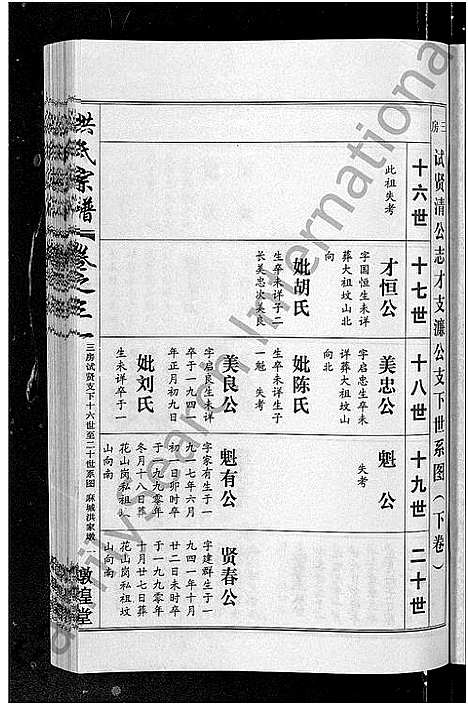 三房
试贤清公志才支濂公支下世系图（下卷）
十六世
十七世
十八世
十九世
二十世
此祖失考
才恒公
字国恒生卒未详
葬大祖坟山北
向
妣胡氏
生卒未详子二
长美忠次美良
美忠公
字启忠生卒未
详葬大祖坟山
向北
妣陈氏
生卒未详生子
一魁 失考
美良公
字启良生未详
卒于一九一四
年正月初九日
妣刘氏
生未详卒于一
魁公
失考
魁有公
字家有生于一
九一七年六月
初一日卯时卒
于一九九零年
冬月十八日葬
花山岗私祖坟
山向南
贤春公
字建群生于一
九四一年十月
廿二日未时卒
于一九九零年
十月十七日葬
花山岗私祖坟
山向南
洪氏宗谱
卷之三
三房试贤支下十六世至二十世系图 麻城洪家墩 一
敦煌堂
dailySearch International